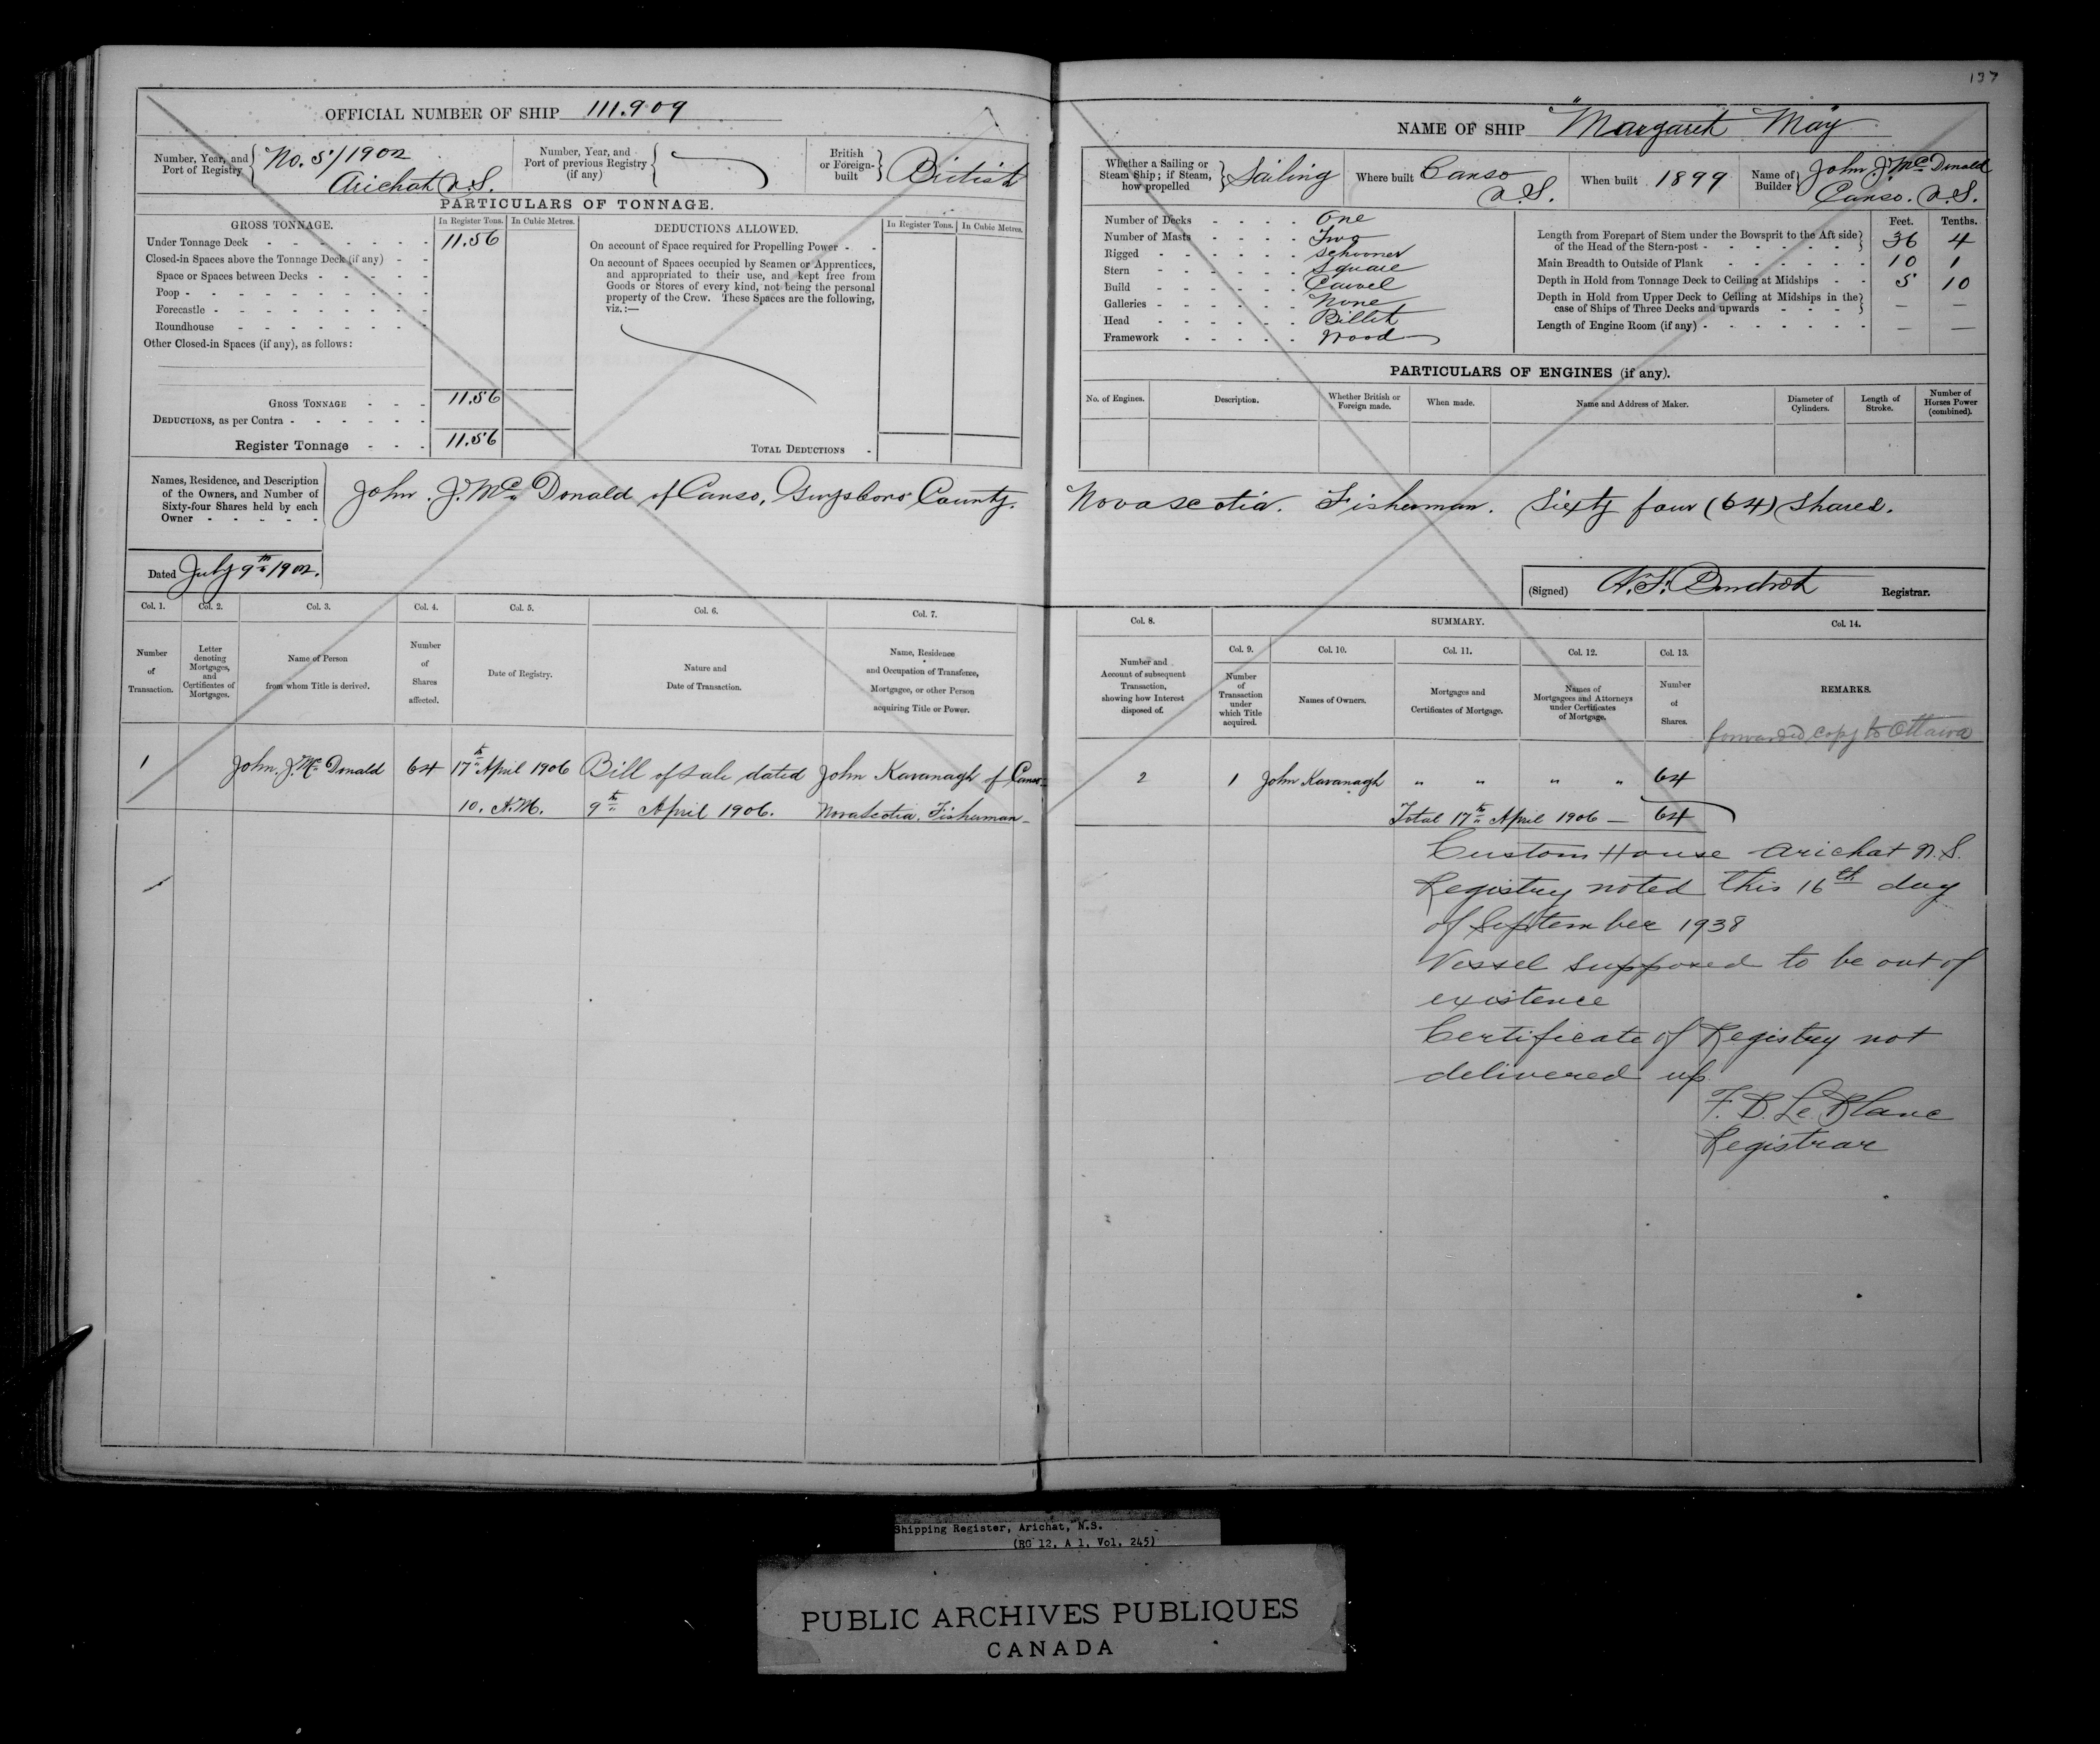 137
OFFICIAL NUMBER OF SHIP 111.909
NAME OF SHIP "Margaret May"
Number, Year, and Port of Registry No. 5/1902 Arichat N.S.
Number, Year, and Port of previous Registry (if any)
British or Foreign-built British
Whether a Sailing or Steam Ship; if Steam, how propelled Sailing
Where built Canso N.S.
When built 1899
Name of Builder John J. McDonald Canso. N.S.
PARTICULARS OF TONNAGE.
GROSS TONNAGE. In Register Tons. In Cubic Metres.
Under Tonnage Deck 11.56
Closed-in Spaces above the Tonnage Deck (if any)
Space or Spaces between Decks
Poop
Forecastle
Roundhouse
Other Closed-in Spaces (if any), as follows:
GROSS TONNAGE 11.56
DEDUCTIONS, as per Contra
Register Tonnage 11.56
DEDUCTIONS ALLOWED. In Register Tons. In Cubic Metres.
On account of Space required for Propelling Power
On account of Spaces occupied by Seamen or Apprentices,
and appropriated to their use, and kept free from
Goods or Stores of every kind, not being the personal
property of the Crew. These Spaces are the following,
viz.:—
TOTAL DEDUCTIONS
Number of Decks One
Number of Masts Two
Rigged Schooner
Stern Square
Build Carvel
Galleries None
Head Billet
Framework Wood
Feet. Tenths.
Length from Forepart of Stem under the Bowsprit to the Aft side of the Head of the Stern-post 36 4
Main Breadth to Outside of Plank 10 1
Depth in Hold from Tonnage Deck to Ceiling at Midships 5 10
Depth in Hold from Upper Deck to Ceiling at Midships in the case of Ships of Three Decks and upwards — —
Length of Engine Room (if any) — —
PARTICULARS OF ENGINES (if any).
No. of Engines. Description. Whether British or Foreign made. When made. Name and Address of Maker. Diameter of Cylinders. Length of Stroke. Number of Horses Power (combined).
Names, Residence, and Description
of the Owners, and Number of
Sixty-four Shares held by each
Owner
John. J. McDonald of Canso, Guysboro County. Novascotia. Fisherman. Sixty four (64) Shares.
Dated July 9th 1902.
(Signed) Registrar.
Col. 1. Col. 2. Col. 3. Col. 4. Col. 5. Col. 6. Col. 7.
Number of Transaction.
Letter denoting Mortgages, and Certificates of Mortgages.
Name of Person from whom Title is derived.
Number of Shares affected.
Date of Registry.
Nature and Date of Transaction.
Name, Residence and Occupation of Transferee, Mortgagee, or other Person acquiring Title or Power.
Col. 8. SUMMARY. Col. 14.
Col. 9. Col. 10. Col. 11. Col. 12. Col. 13.
Number and Account of subsequent Transaction, showing how Interest disposed of.
Number of Transaction under which Title acquired.
Names of Owners.
Mortgages and Certificates of Mortgage.
Names of Mortgagees and Attorneys under Certificates of Mortgage.
Number of Shares.
REMARKS.
forwarded copy to Ottawa
1 John. J. McDonald 64 17th April 1906 Bill of Sale dated John Kavanagh of Canso
10. A.M. 9th April 1906. Novascotia. Fisherman
2 1 John Kavanagh " " " " 64
Total 17th April 1906 — 64
Custom House Arichat N.S.
Registry noted this 16th day
of September 1938
Vessel supposed to be out of
existence
Certificate of Registry not
delivered up
F. D. Le Blanc
Registrar
Shipping Register, Arichat, N.S.
(RG 12, A 1, Vol. 245)
PUBLIC ARCHIVES PUBLIQUES
CANADA